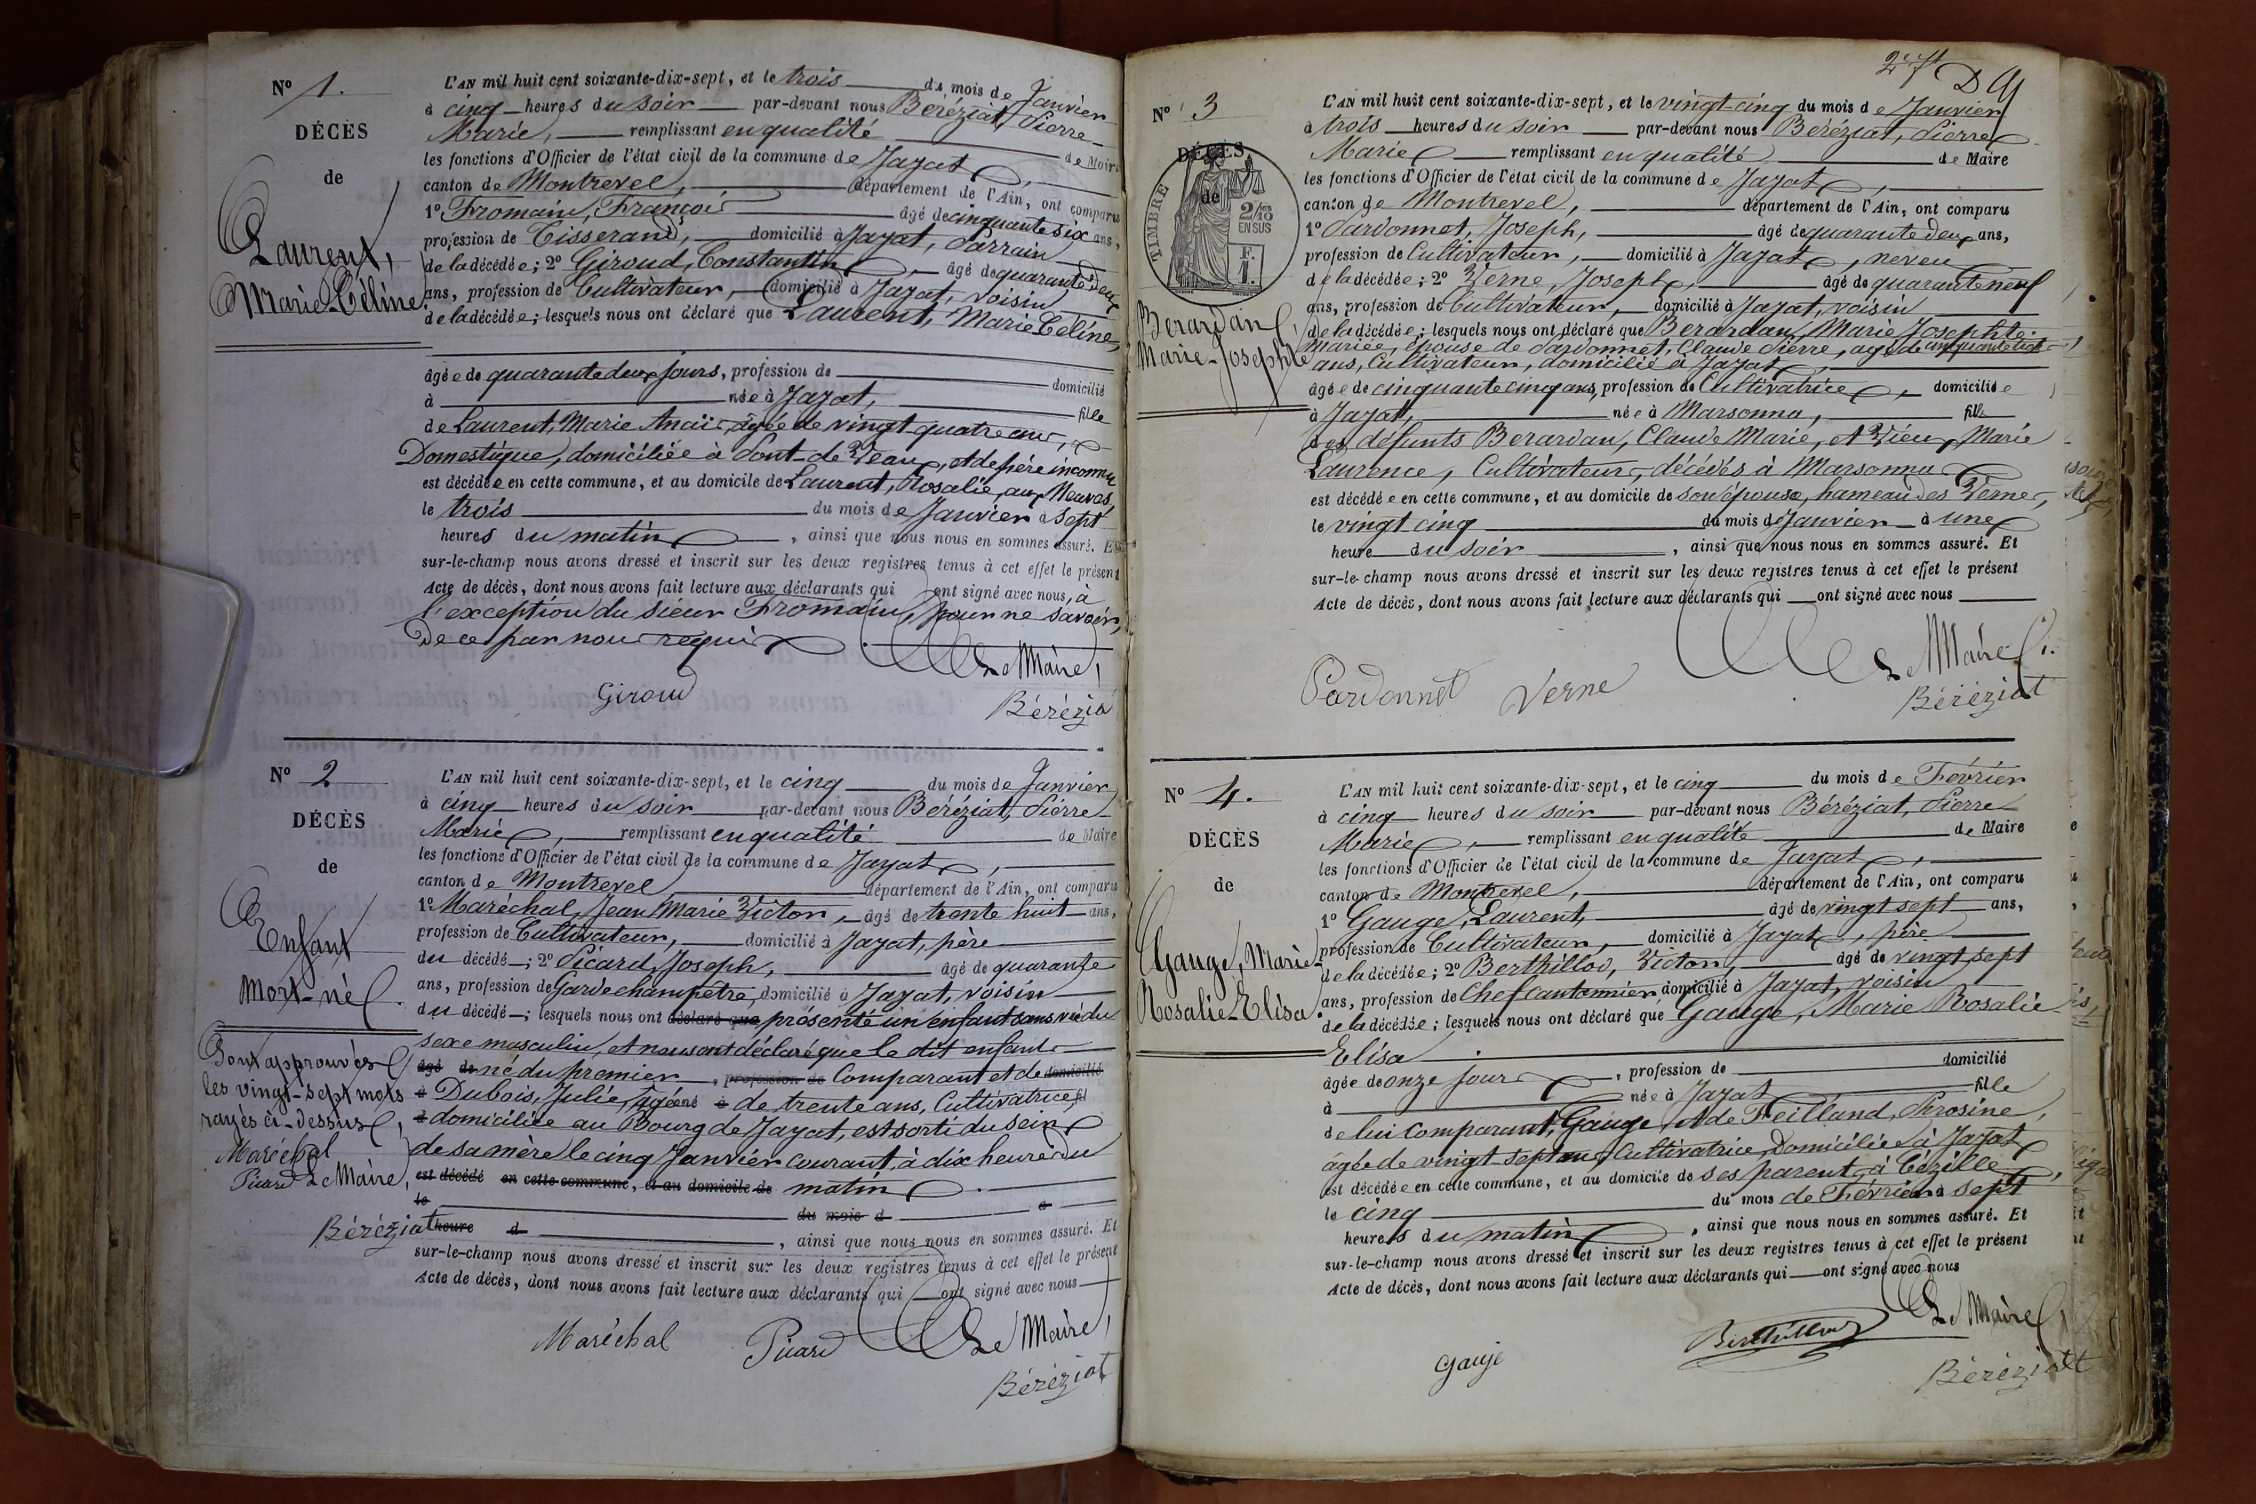 N° 1.
DÉCÈS
de
Laurent,
Marie-Céline.
L'AN mil huit cent soixante-dix-sept, et le trois du mois de Janvier
à cinq heures du soir par-devant nous Béréziat, Pierre
Marie, remplissant en qualité de Maire
les fonctions d'Officier de l'état civil de la commune de Jayat,
canton de Montrevel, département de l'Ain, ont comparu
1° Fromain, François âgé de cinquante six ans,
profession de Tisserand, domicilié à Jayat, Parrain
de la décédée; 2° Giroud, Constantin, âgé de quarante deux
ans, profession de Cultivateur, domicilié à Jayat, voisin
de la décédée; lesquels nous ont déclaré que Laurent, Marie Céline,
âgée de quarante deux jours, profession de domicilié
à née à Jayat, fille
de Laurent, Marie Anaïs, âgée de vingt quatre ans,
Domestique, domiciliée à Pont-de-Veaux, et de père inconnu
est décédée en cette commune, et au domicile de Laurent, Rosalie, aux Mouvas,
le trois du mois de Janvier à sept
heures du matin, ainsi que nous nous en sommes assuré. Et
sur-le-champ nous avons dressé et inscrit sur les deux registres tenus à cet effet le présent
Acte de décès, dont nous avons fait lecture aux déclarants qui ont signé avec nous, à
l'exception du sieur Fromain, pour ne savoir,
de ce par nous requis
Le Maire,
Giroud
Béréziat
N° 2
DÉCÈS
de
Enfant
Mort-né.
L'AN mil huit cent soixante-dix-sept, et le cinq du mois de Janvier
à cinq heures du soir par-devant nous Béréziat, Pierre
Marie, remplissant en qualité de Maire
les fonctions d'Officier de l'état civil de la commune de Jayat,
canton de Montrevel département de l'Ain, ont comparu
1° Maréchal, Jean Marie Victor, âgé de trente huit ans,
profession de Cultivateur, domicilié à Jayat, père
du décédé; 2° Picard, Joseph, âgé de quarante
ans, profession de Garde champêtre, domicilié à Jayat, voisin
du décédé; lesquels nous ont déclaré que présenté un enfant sans vie du
sexe masculin, et nous ont déclaré que le dit enfant
âgé de né du premier, profession de Comparant et de domicilié
à Dubois, Julie, âgée né à de trente ans, Cultivatrice, fil
à domiciliée au Bourg de Jayat, est sorti du sein
de sa mère le cinq Janvier courant, à dix heures du
est décédé en cette commune, et au domicile de matin.
le du mois d à
heure d, ainsi que nous nous en sommes assuré. Et
sur-le-champ nous avons dressé et inscrit sur les deux registres tenus à cet effet le présent
Acte de décès, dont nous avons fait lecture aux déclarants qui ont signé avec nous
Sont approuvés
les vingt-sept mots
rayés ci-dessus,
Maréchal
Picard Le Maire,
Béréziat
Le Maire,
Maréchal Picard
Béréziat
2 D
N° 3
DÉCÈS
de
TIMBRE
2/10 EN SUS
F. 1.
Berardan
Marie-Josephte
L'AN mil huit cent soixante-dix-sept, et le vingt-cinq du mois de Janvier
à trois heures du soir par-devant nous Béréziat, Pierre
Marie remplissant en qualité de Maire
les fonctions d'Officier de l'état civil de la commune de Jayat,
canton de Montrevel, département de l'Ain, ont comparu
1° Pardonnet, Joseph, âgé de quarante deux ans,
profession de Cultivateur, domicilié à Jayat, neveu
de la décédée; 2° Verne, Joseph, âgé de quarante neuf
ans, profession de Cultivateur, domicilié à Jayat, voisin
de la décédée; lesquels nous ont déclaré que Berardan, Marie Josephte
mariée, épouse de Pardonnet, Claude Pierre, âgé de cinquante huit
ans, Cultivateur, domicilié à Jayat,
âgée de cinquante cinq ans, profession de Cultivatrice, domiciliée
à Jayat, née à Marsonna, fille
des défunts Berardan, Claude Marie, et Vieux, Marie
Laurence, Cultivateurs, décédés à Marsonna
est décédée en cette commune, et au domicile de son épouse, hameau des Vernes,
le vingt cinq du mois de Janvier à une
heure du soir, ainsi que nous nous en sommes assuré. Et
sur-le-champ nous avons dressé et inscrit sur les deux registres tenus à cet effet le présent
Acte de décès, dont nous avons fait lecture aux déclarants qui ont signé avec nous
Le Maire
Pardonnet Verne
Béréziat
N° 4.
DÉCÈS
de
Gauge, Marie
Rosalie-Elisa.
L'AN mil huit cent soixante-dix-sept, et le cinq du mois de Février
à cinq heures du soir par-devant nous Béréziat, Pierre
Marie, remplissant en qualité de Maire
les fonctions d'Officier de l'état civil de la commune de Jayat,
canton de Montrevel, département de l'Ain, ont comparu
1° Gauge, Laurent, âgé de vingt sept ans,
profession de Cultivateur, domicilié à Jayat, père
de la décédée; 2° Berthillod, Victor, âgé de vingt sept
ans, profession de Chef cantonnier, domicilié à Jayat, voisin
de la décédée; lesquels nous ont déclaré que Gauge, Marie Rosalie
Elisa
âgée de onze jours, profession de domicilié
à née à Jayat fille
de lui Comparant, Gauge, et de Feilland, Phrosine,
âgée de vingt-sept ans, Cultivatrice, Domiciliée à Jayat
est décédée en cette commune, et au domicile de ses parents, à Cézille,
le cinq du mois de Février à sept
heures du matin, ainsi que nous nous en sommes assuré. Et
sur-le-champ nous avons dressé et inscrit sur les deux registres tenus à cet effet le présent
Acte de décès, dont nous avons fait lecture aux déclarants qui ont signé avec nous
Le Maire,
Gauge Berthillod
Béréziat